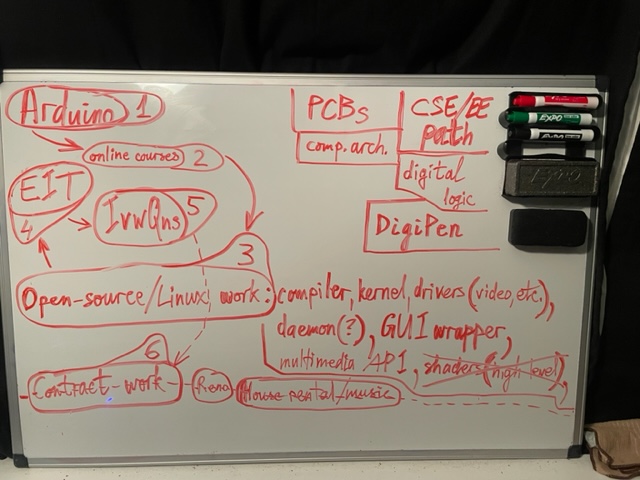 Arduino 1
online courses 2
EIT
4
IvwQns 5
3
Open-source/Linux work: compiler, kernel, drivers (video, etc.),
daemon(?), GUI wrapper,
multimedia API, shaders (high level),
6
Contract-work - Reno House rental/music
PCBs
comp. arch.
CSE/EE
path
digital
logic
DigiPen
EXPO
EXPO
EXPO